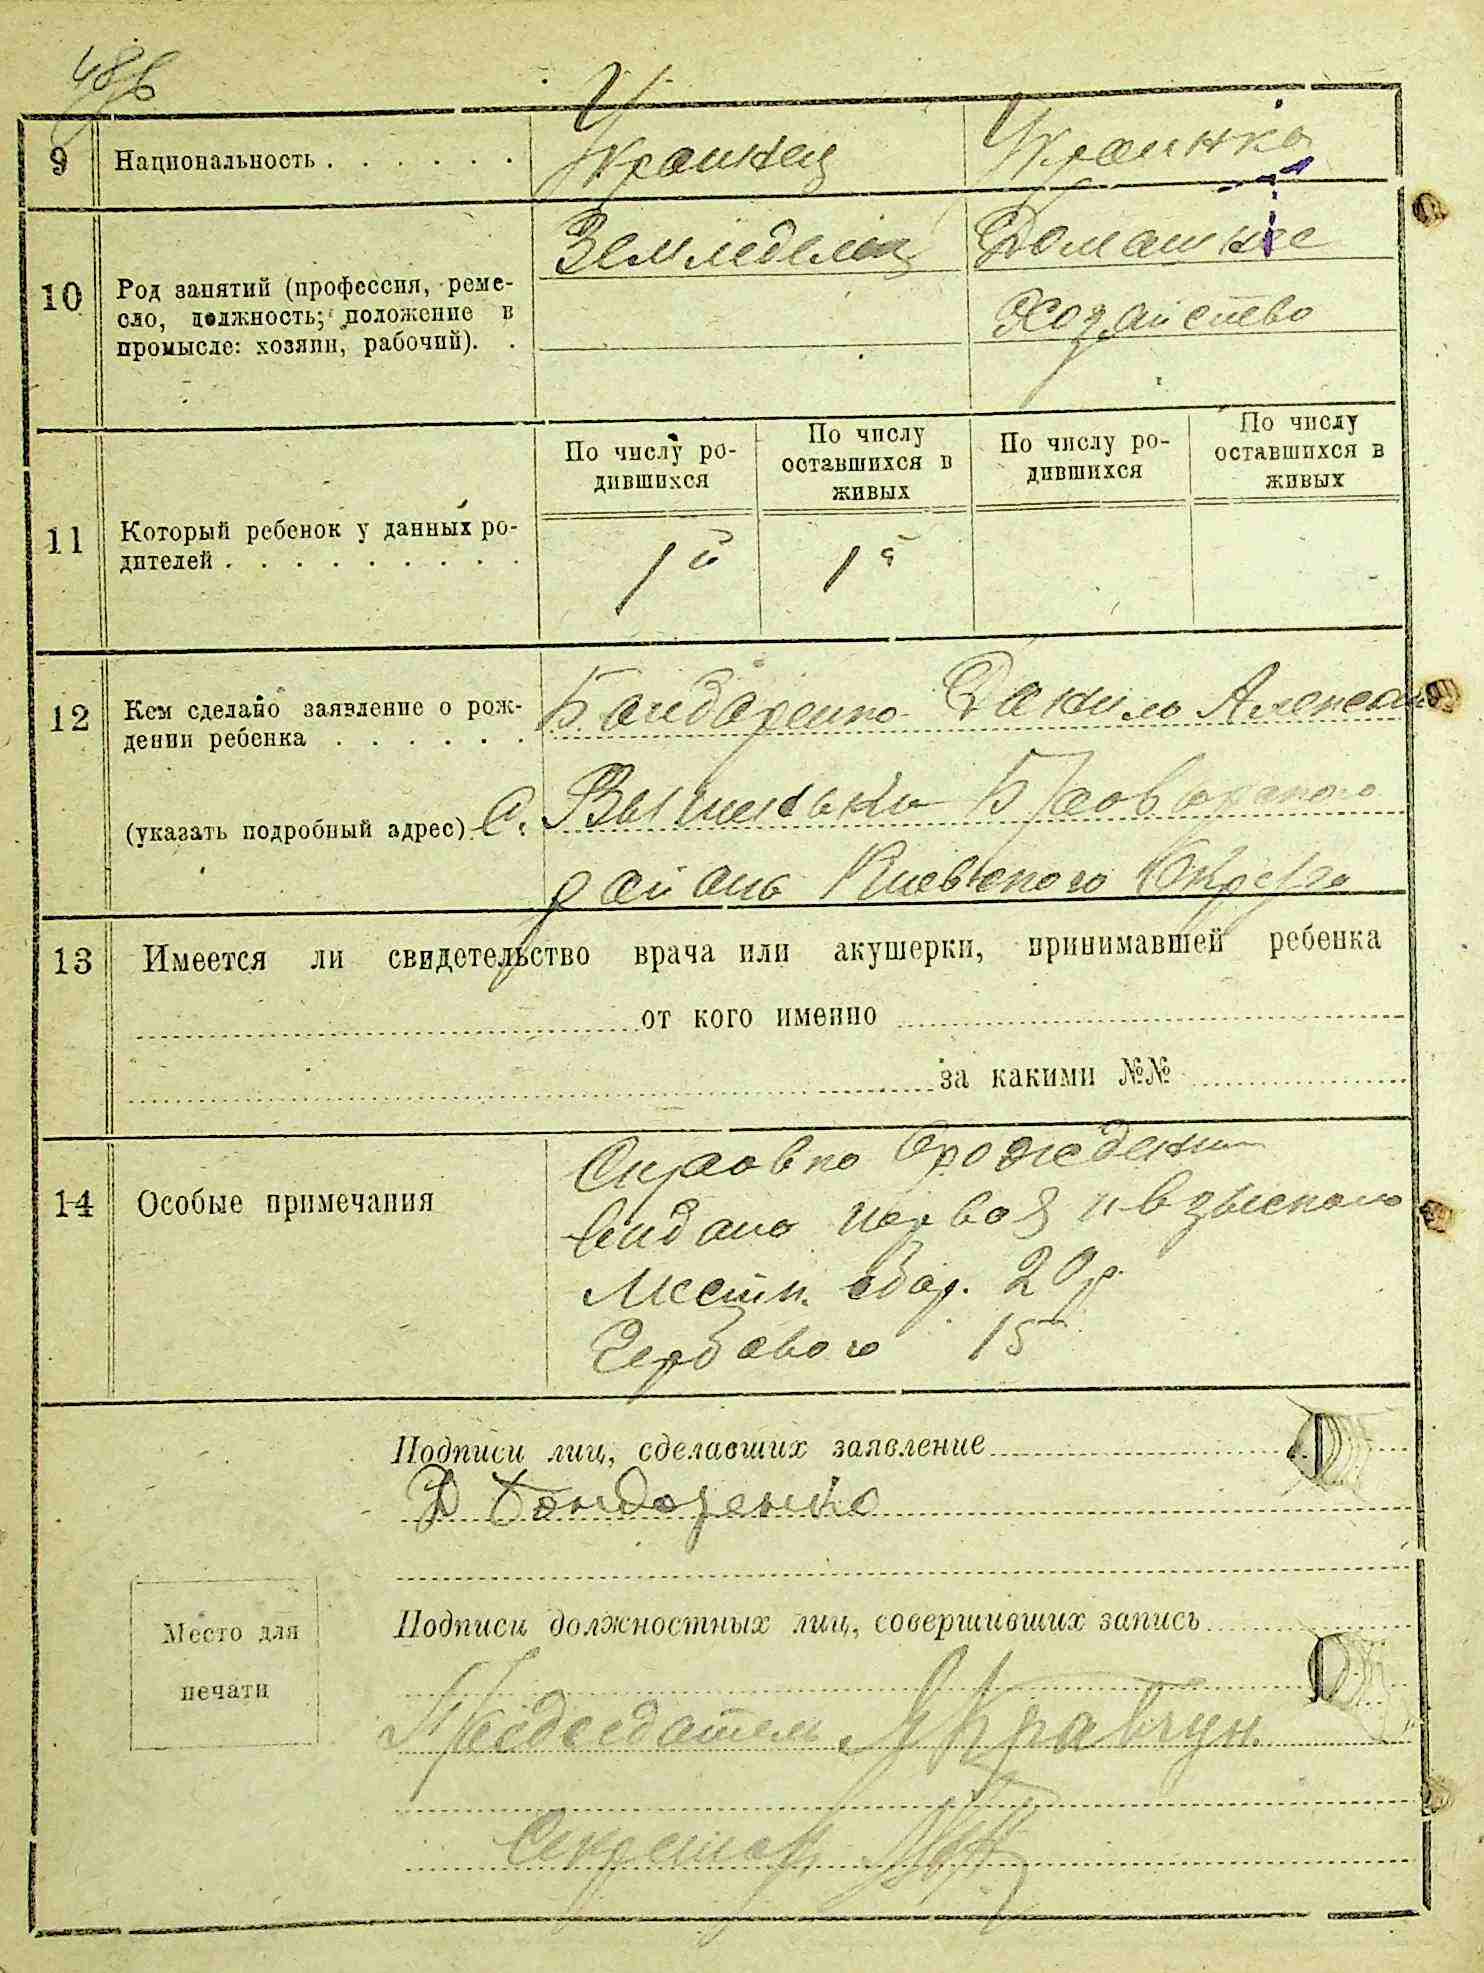 486
9 Национальность . . . . . . Украинец Украинка
10 Род занятий (профессия, реме-
сло, должность; положение в
промысле: хозяин, рабочий). .
Земледелец Домашнее
Хозайство
11 Который ребенок у данных ро-
дителей . . . . . . . . .
По числу ро-
дившихся
По числу
оставшихся в
живых
По числу ро-
дившихся
По числу
оставшихся в
живых
1й 1й
12 Кем сделано заявление о рож-
дении ребенка . . . . . .
Бандаренко Данило Алексан
(указать подробный адрес) С. Вышеньки Баоворского
района Киевского Округа
13 Имеется ли свидетельство врача или акушерки, принимавшей ребенка
от кого именно
за какими №№
14 Особые примечания
Справка О рождении
видана первая и взыскано
Местн. сбор. 20 р.
Гербового 15
Подписи лиц, сделавших заявление
Д Бондаренко
Место для
печати
Подписи должностных лиц, совершивших запись
Председатель Кравчун
Секретарь